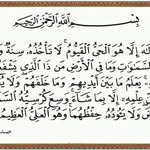 بِسْمِ اللَّهِ الرَّحْمَٰنِ الرَّحِيمِ
إِلَّا هُوَ الْحَيُّ الْقَيُّومُ لَا تَأْخُذُهُ سِنَةٌ
السَّمَاوَاتِ وَمَا فِي الْأَرْضِ مَن ذَا الَّذِي يَشْفَعُ
يَعْلَمُ مَا بَيْنَ أَيْدِيهِمْ وَمَا خَلْفَهُمْ وَلَا
عِلْمِهِ إِلَّا بِمَا شَاءَ وَسِعَ كُرْسِيُّهُ
وَلَا يَئُودُهُ حِفْظُهُمَا وَهُوَ الْعَلِيُّ الْعَظِيمُ